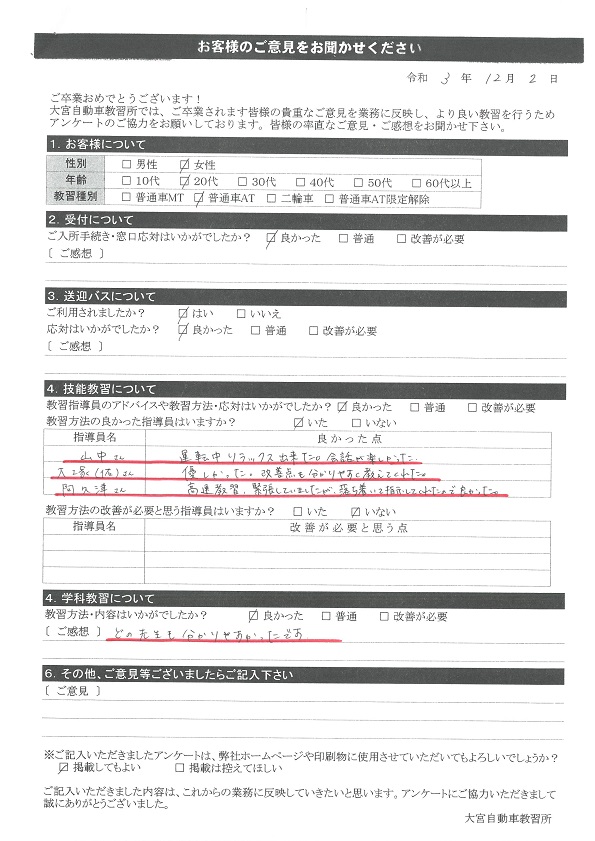 お客様のご意見をお聞かせください
令和 3 年 12 月 2 日
ご卒業おめでとうございます！
大宮自動車教習所では、ご卒業されます皆様の貴重なご意見を業務に反映し、より良い教習を行うため
アンケートのご協力をお願いしております。皆様の率直なご意見・ご感想をお聞かせ下さい。
1. お客様について
性別 □ 男性 ☑ 女性
年齢 □ 10代 ☑ 20代 □ 30代 □ 40代 □ 50代 □ 60代以上
教習種別 □ 普通車MT ☑ 普通車AT □ 二輪車 □ 普通車AT限定解除
2. 受付について
ご入所手続き・窓口応対はいかがでしたか？ ☑ 良かった □ 普通 □ 改善が必要
〔 ご感想 〕
3. 送迎バスについて
ご利用されましたか？ ☑ はい □ いいえ
応対はいかがでしたか？ ☑ 良かった □ 普通 □ 改善が必要
〔 ご感想 〕
4. 技能教習について
教習指導員のアドバイスや教習方法・応対はいかがでしたか？ ☑ 良かった □ 普通 □ 改善が必要
教習方法の良かった指導員はいますか？ ☑ いた □ いない
指導員名 良かった点
山中さん 運転中リラックス出来た。会話が楽しかった.
大塚(佑)さん 優しかった。改善点も分かりやすく教えてくれた。
阿久津さん 高速教習、緊張していましたが、落ち着いて指示してくれたので良かった。
教習方法の改善が必要と思う指導員はいますか？ □ いた ☑ いない
指導員名 改善が必要と思う点
4. 学科教習について
教習方法・内容はいかがでしたか？ ☑ 良かった □ 普通 □ 改善が必要
〔 ご感想 〕 どの先生も分かりやすかったです
6. その他、ご意見等ございましたらご記入下さい
〔 ご意見 〕
※ご記入いただきましたアンケートは、弊社ホームページや印刷物に使用させていただいてもよろしいでしょうか？
☑ 掲載してもよい □ 掲載は控えてほしい
ご記入いただきました内容は、これからの業務に反映していきたいと思います。アンケートにご協力いただきまして
誠にありがとうございました。
大宮自動車教習所